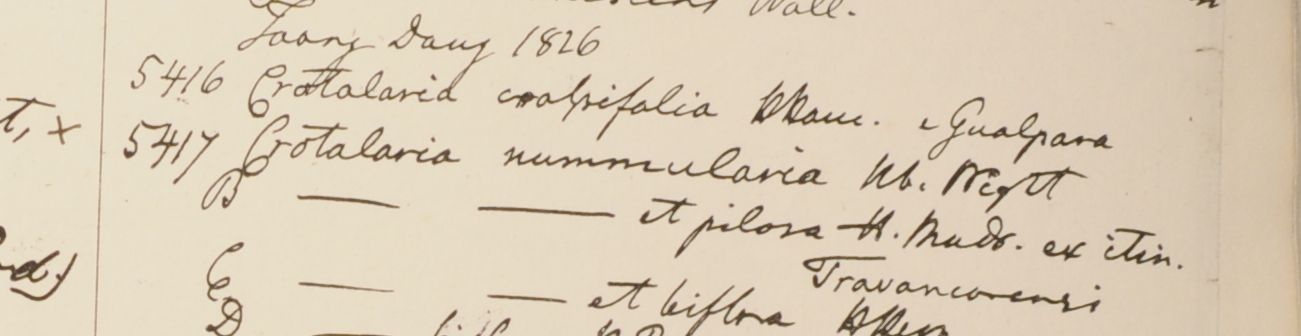 Wall.
Taong Daung 1826
5416 Crotalaria crassifolia HHam. e Gualpara
t, x
5417 Crotalaria nummularia Hb. Wight
B — — et pilosa H. Madr. ex itin.
Travancorensi
C — — et biflora
D —